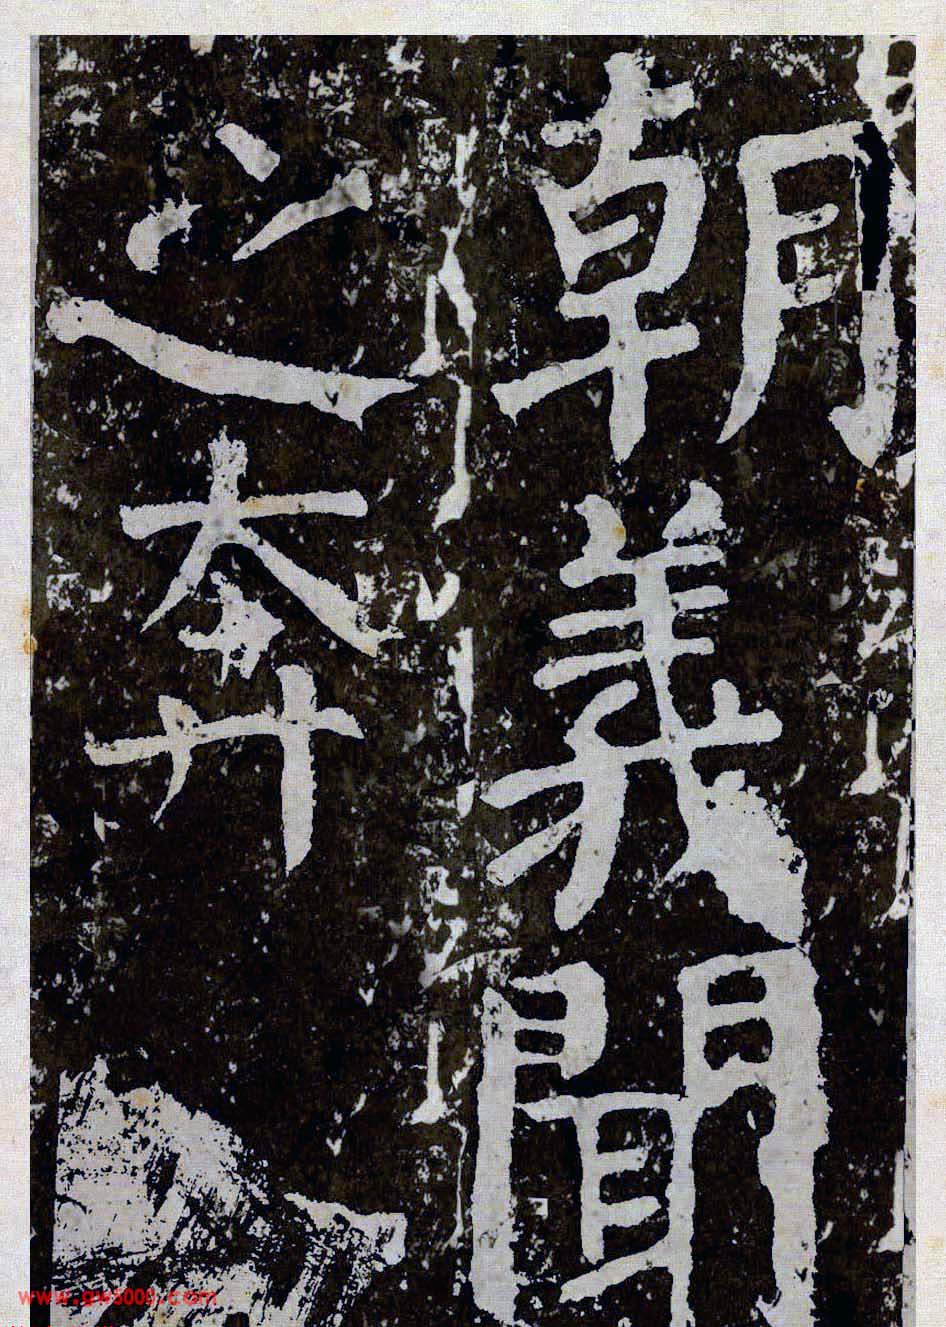 朝義聞
之奔
www.gw5000.com